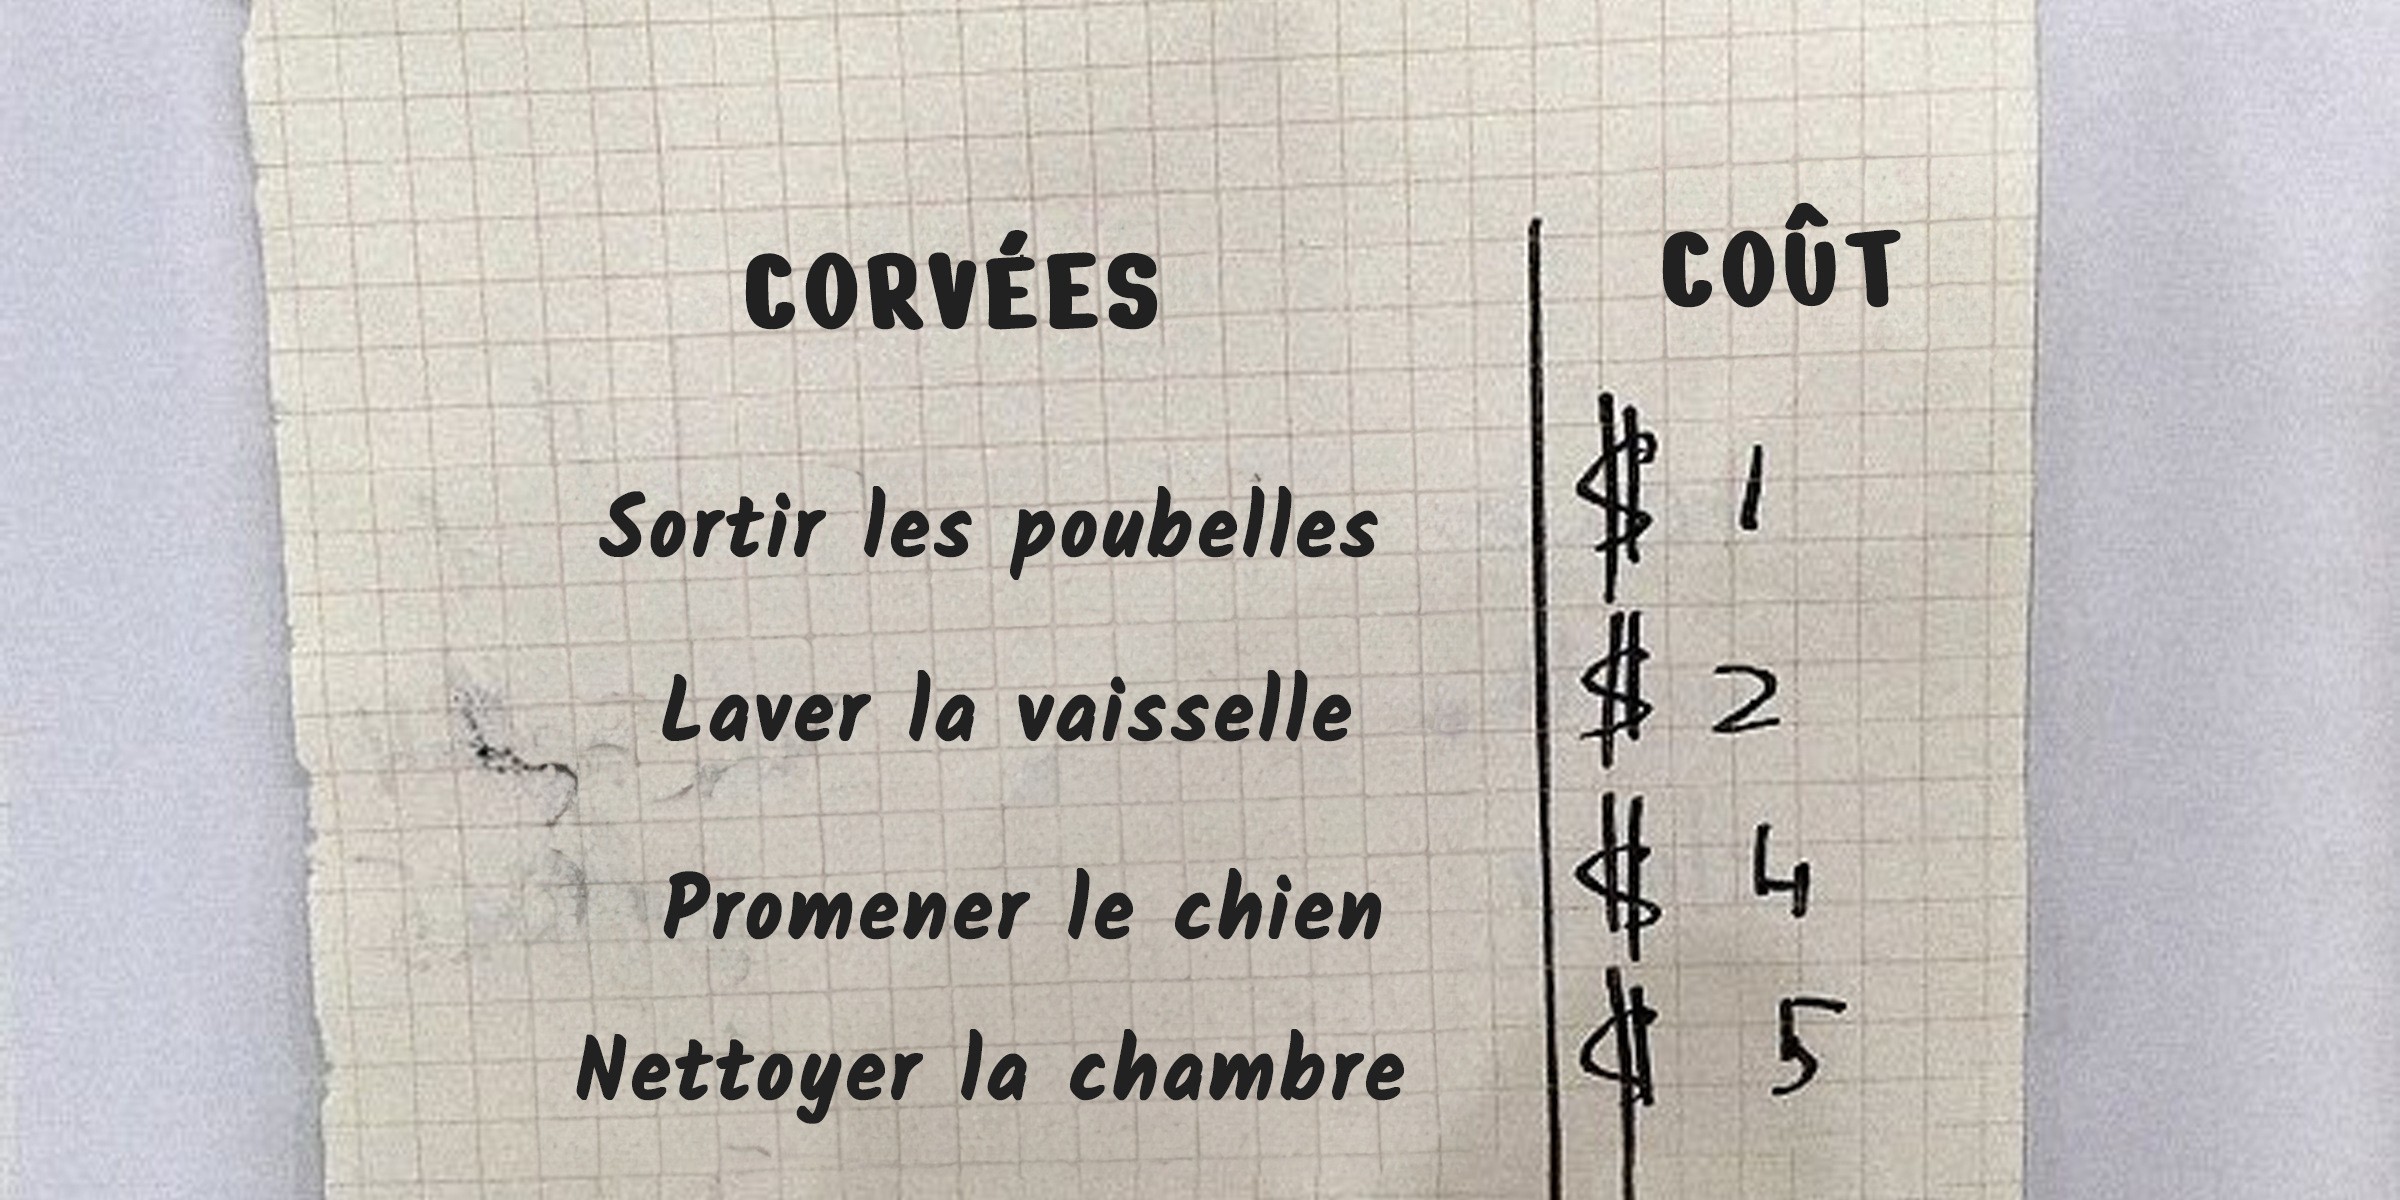 CORVÉES COÛT
Sortir les poubelles $ 1
Laver la vaisselle $ 2
Promener le chien $ 4
Nettoyer la chambre $ 5